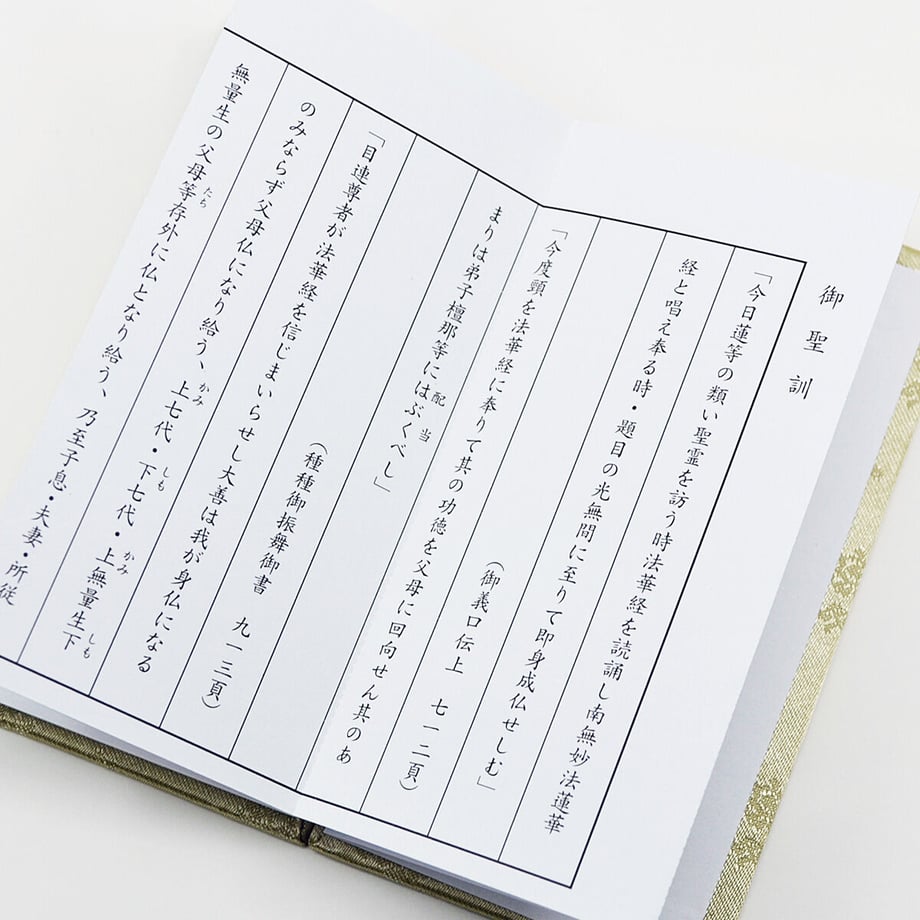 御聖訓
「今日蓮等の類い聖霊を訪う時法華経を読誦し南無妙法蓮華
経と唱え奉る時・題目の光無間に至りて即身成仏せしむ」
（御義口伝上　七一二頁）
「今度頸を法華経に奉りて其の功徳を父母に回向せん其のあ
まりは弟子檀那等にはぶくべし」
配当
（種種御振舞御書　九一三頁）
「目連尊者が法華経を信じまいらせし大善は我が身仏になる
のみならず父母仏になり給う、上七代・下七代・上無量生下
かみ
しも
かみ
しも
無量生の父母等存外に仏となり給う、乃至子息・夫妻・所従
たち